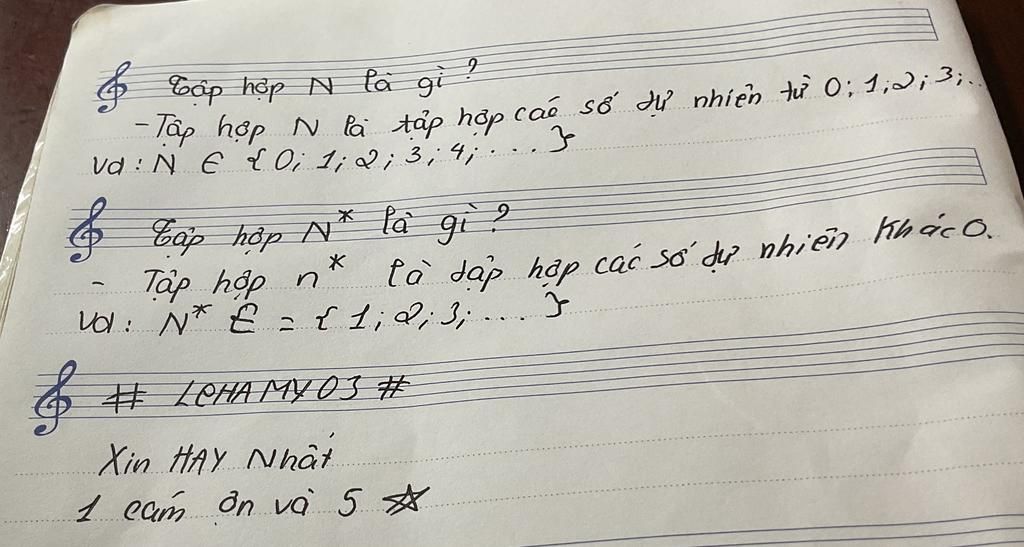 Tập hợp N là gì?
- Tập hợp N là tập hợp các số tự nhiên từ 0; 1; 2; 3; ..
Vd: N ∈ {0; 1; 2; 3; 4; ...}
Tập hợp N* là gì?
- Tập hợp n* là tập hợp các số tự nhiên khác 0.
Vd: N* ∈ = {1; 2; 3; ...}
# LeHAMY03 #
Xin HAY Nhất
1 cám ơn và 5 ☆